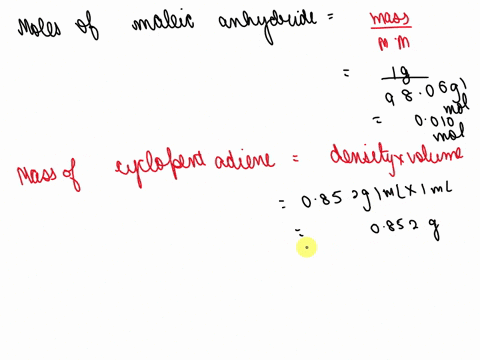 Moles of maleic anhydride = mass
M·M
= 1g
98.06g/mol
= 0.010 mol
Mass of cyclopentadiene = density×volume
= 0.852g/mL×1mL
= 0.852 g